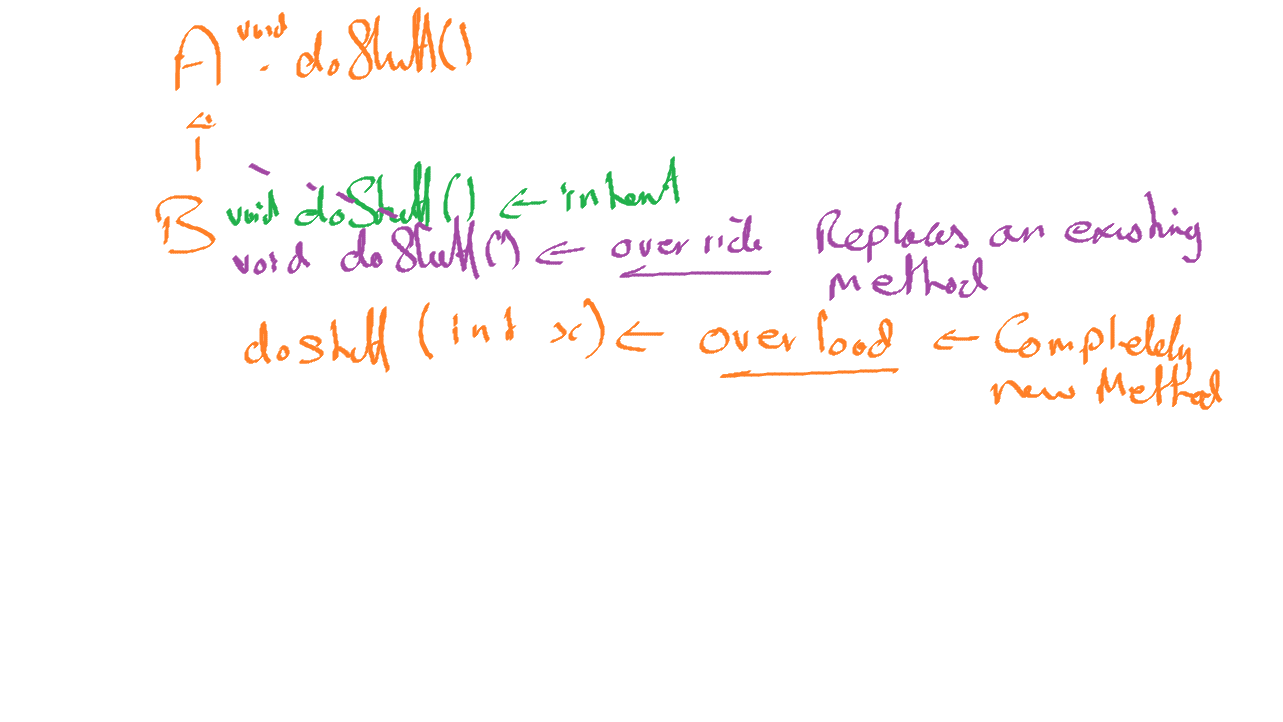 A void doStuff()
B void doStuff() ← inherit
void doStuff() ← override Replaces an existing method
doStuff (int x) ← overload ← Completely new Method